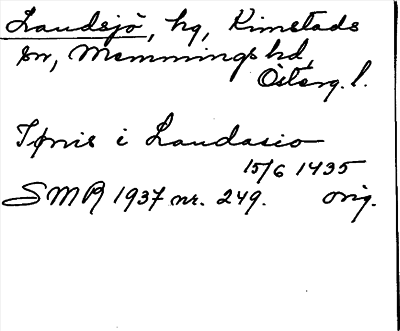 Landsjö, hg, Kimstads
sn, Memmings hd,
Österg. l.
Tønis i Landasio
15/6 1435
SMR 1937 nr. 249. orig.